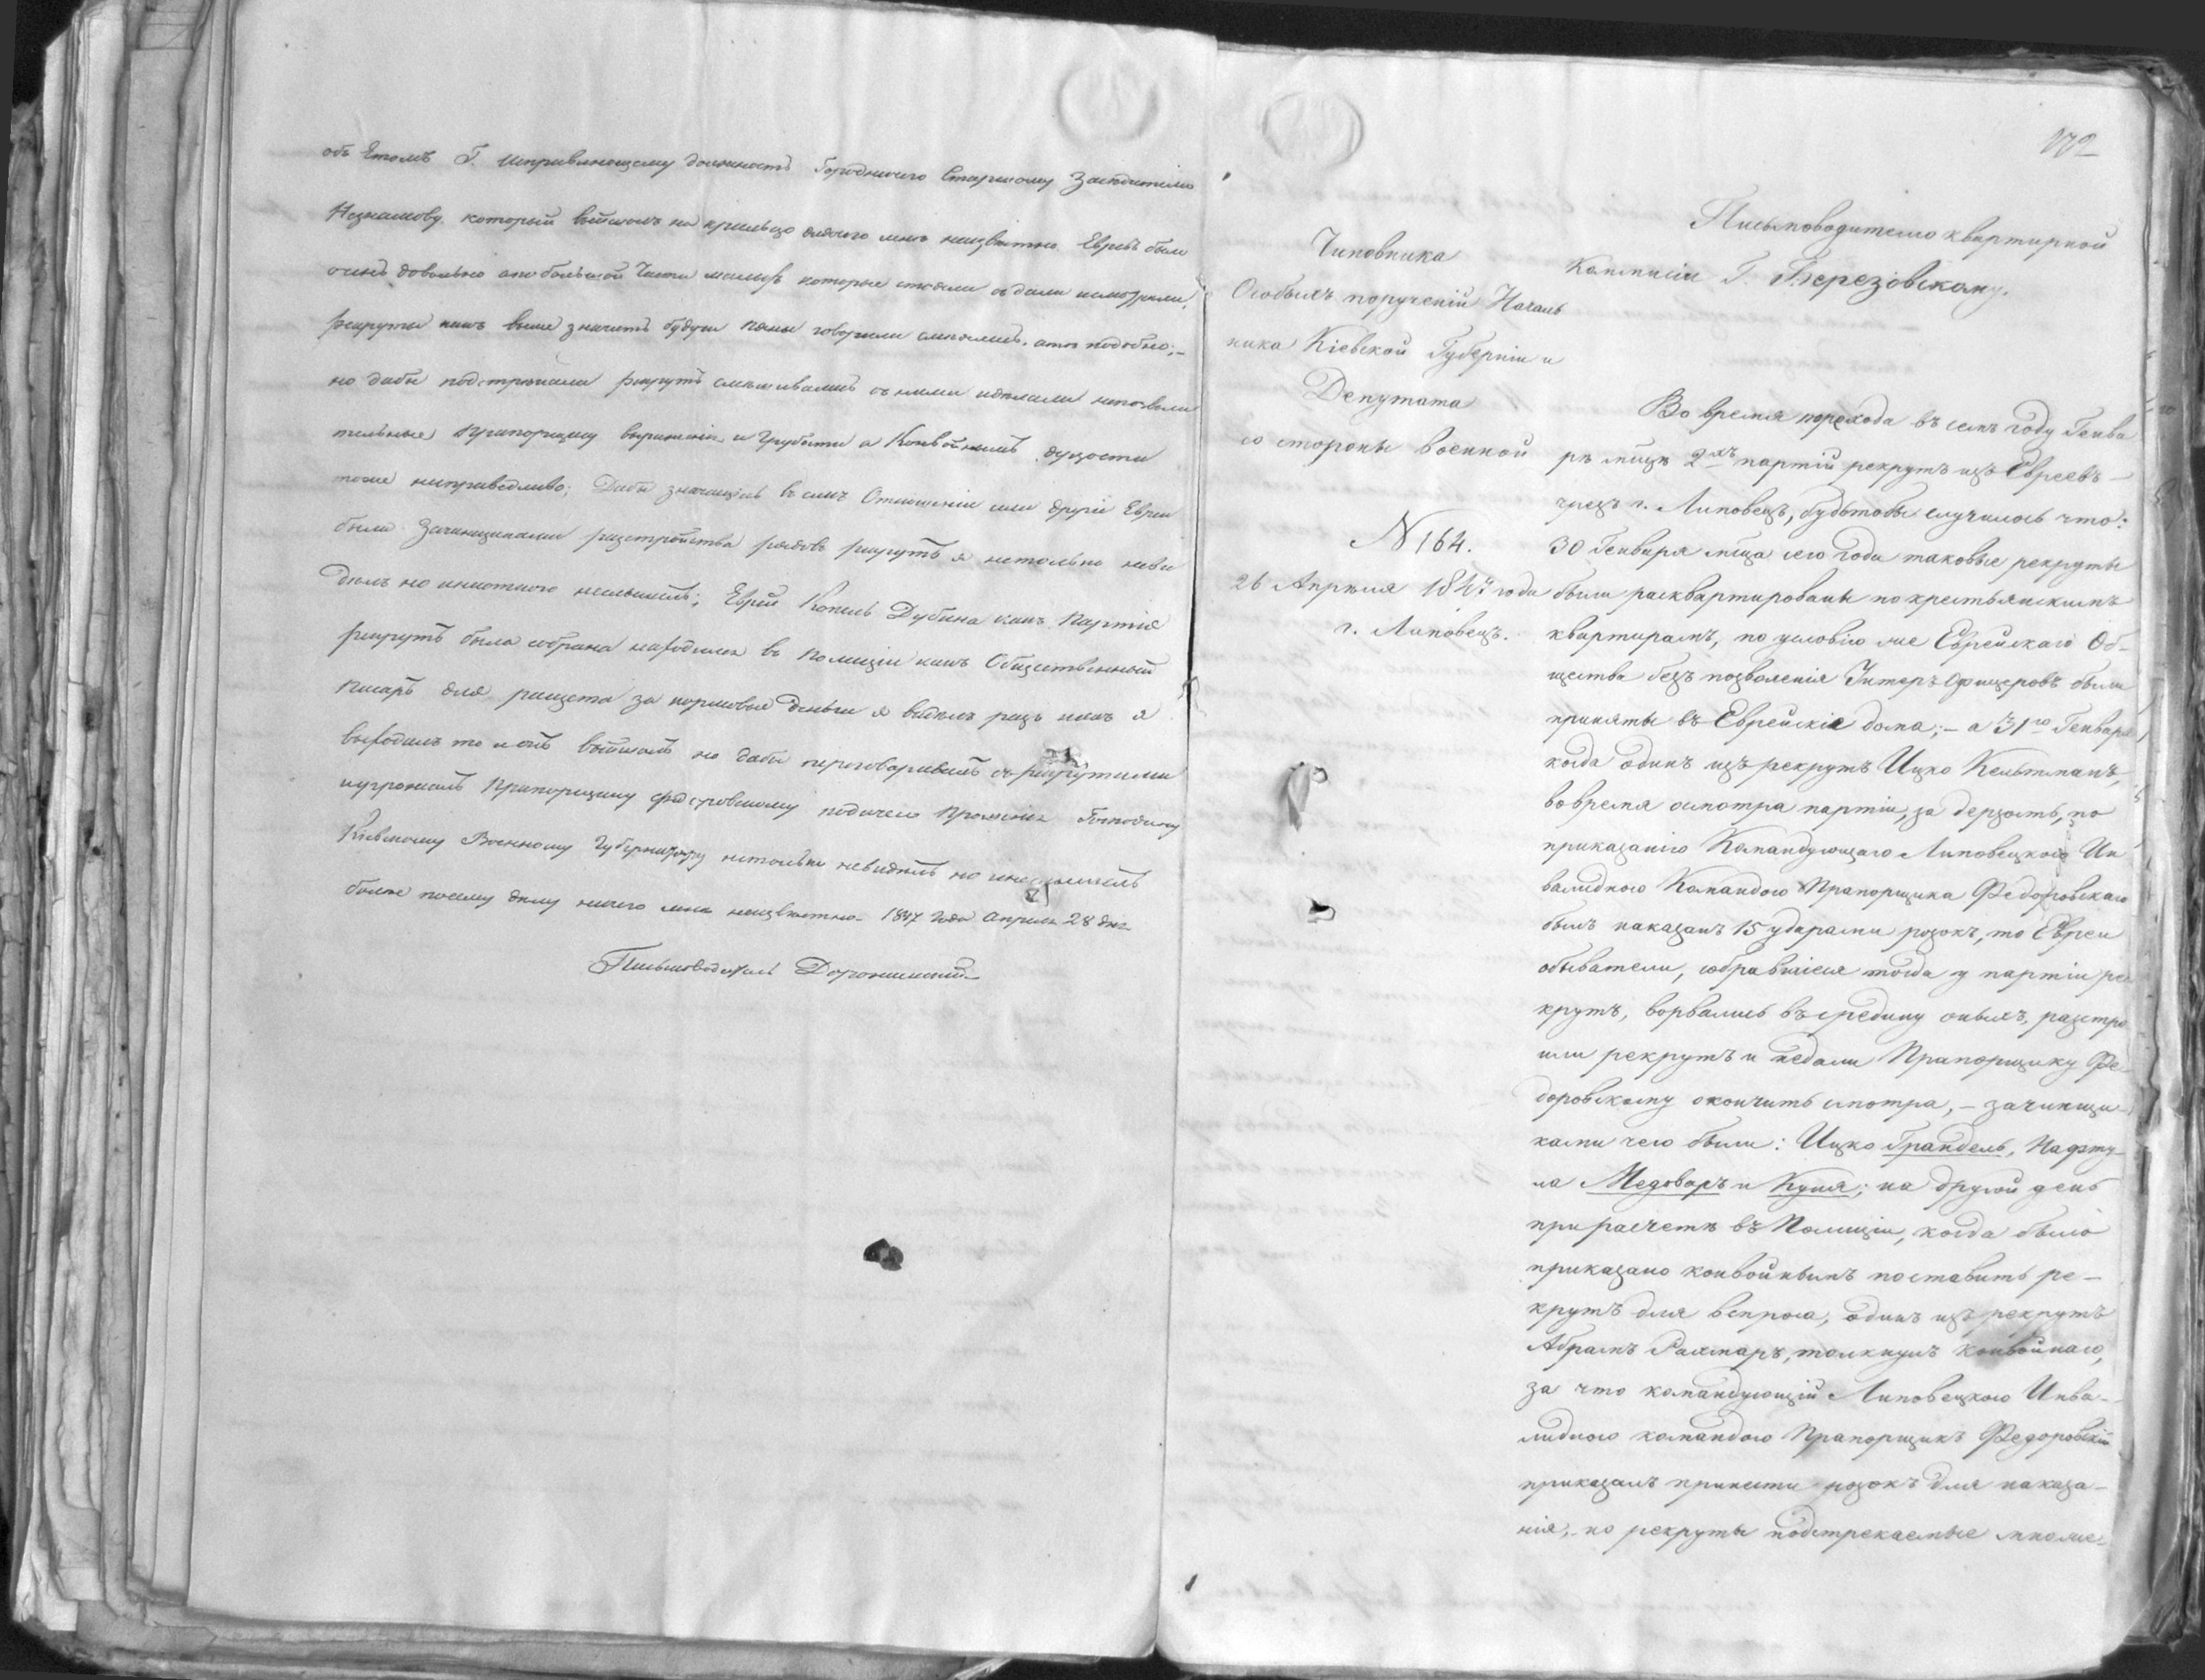 объ Етомъ Г. Исправляющему должность Городничего Старшому Заседателю
Незнамову. который вышолъ на крыльцо длячего мне неизвестно. Евреъ было
очень довольно апо большой Части малыхъ которые стояли въ дали исмотрели,
рекруты какъ выше значитъ будучи пяны говорили смеялись. ато подобно;—
но дабы подстрекали рекрутъ смешивались съ ними иделали непозволи
тельные Прапорщику выражения и грубости а Конвойнымъ дерзости
тоже несправедливо; Дабы значащиеся въ семъ Отношении или другие Евреи
были Зачинщиками разстройства рядовъ рекрутъ я нетолько неви
делъ но инистого неслышелъ; Еврей Копель Дубина какъ Партия
рекрутъ была собрана находился въ Полиции какъ Общественный
писарь для ращета за кормовые деньги я виделъ разъ какъ я
выходилъ то и онъ вышолъ но дабы переговаривалъ съ рекрутами
иугрожалъ Прапорщику Федоровскому подачею Прошения Господину
Киевскому Военному Губернатору нетолько невиделъ но инеслышелъ
более посему делу ничего мне неизвестно. 1847 Года Апреля 28 дня
Письмоводитель
172
Письмоводителю квартирной
Коммисіи Г. Березовскому.
Чиновника
Особыхъ порученій Началь
ника Кіевской Губерніи и
Депутата
со стороны военной
N 164.
26 Апрѣля 1847 года
г. Липовецъ.
Во время перехода въ семъ году Генва
рѣ мцѣ 2хъ партій рекрутъ изъ Евреевъ —
чрезъ г. Липовецъ, будтобы случилось что:
30 Генваря мца сего года таковые рекруты
были расквартированы по крестьянскимъ
квартирамъ, по условію же Еврейскаго Об-
щества безъ позволенія Унтеръ Офицеровъ были
приняты въ Еврейскіе дома; — а 31го Генваря
когда одинъ изъ рекрутъ Ицко Кельтманъ,
вовремя осмотра партіи, за дерзость, по
приказанію Командующаго Липовецкою Ин
валидною Командою Прапорщика Федоровскаго
былъ наказанъ 15 ударами розокъ, то Евреи
обыватели, собравшіеся тогда у партіи ре
крутъ, ворвались въ средину оныхъ, разстро
или рекрутъ и недали Прапорщику Фе-
доровскому окончить смотра, — зачинщи-
ками чего были: Ицко Грандель, Нафту-
ла Медоваръ и Куня; на другой день
при расчетѣ въ Полиціи, когда было
приказано конвойнымъ поставить ре-
крутъ для вспроса, одинъ изъ рекрутъ
Абрамъ толкнулъ конвойнаго,
за что командующій Липовецкою Инва-
лидною командою Прапорщикъ Федоровскій
приказалъ принести розокъ для наказа-
нія, — но рекруты подстрекаемые множе-